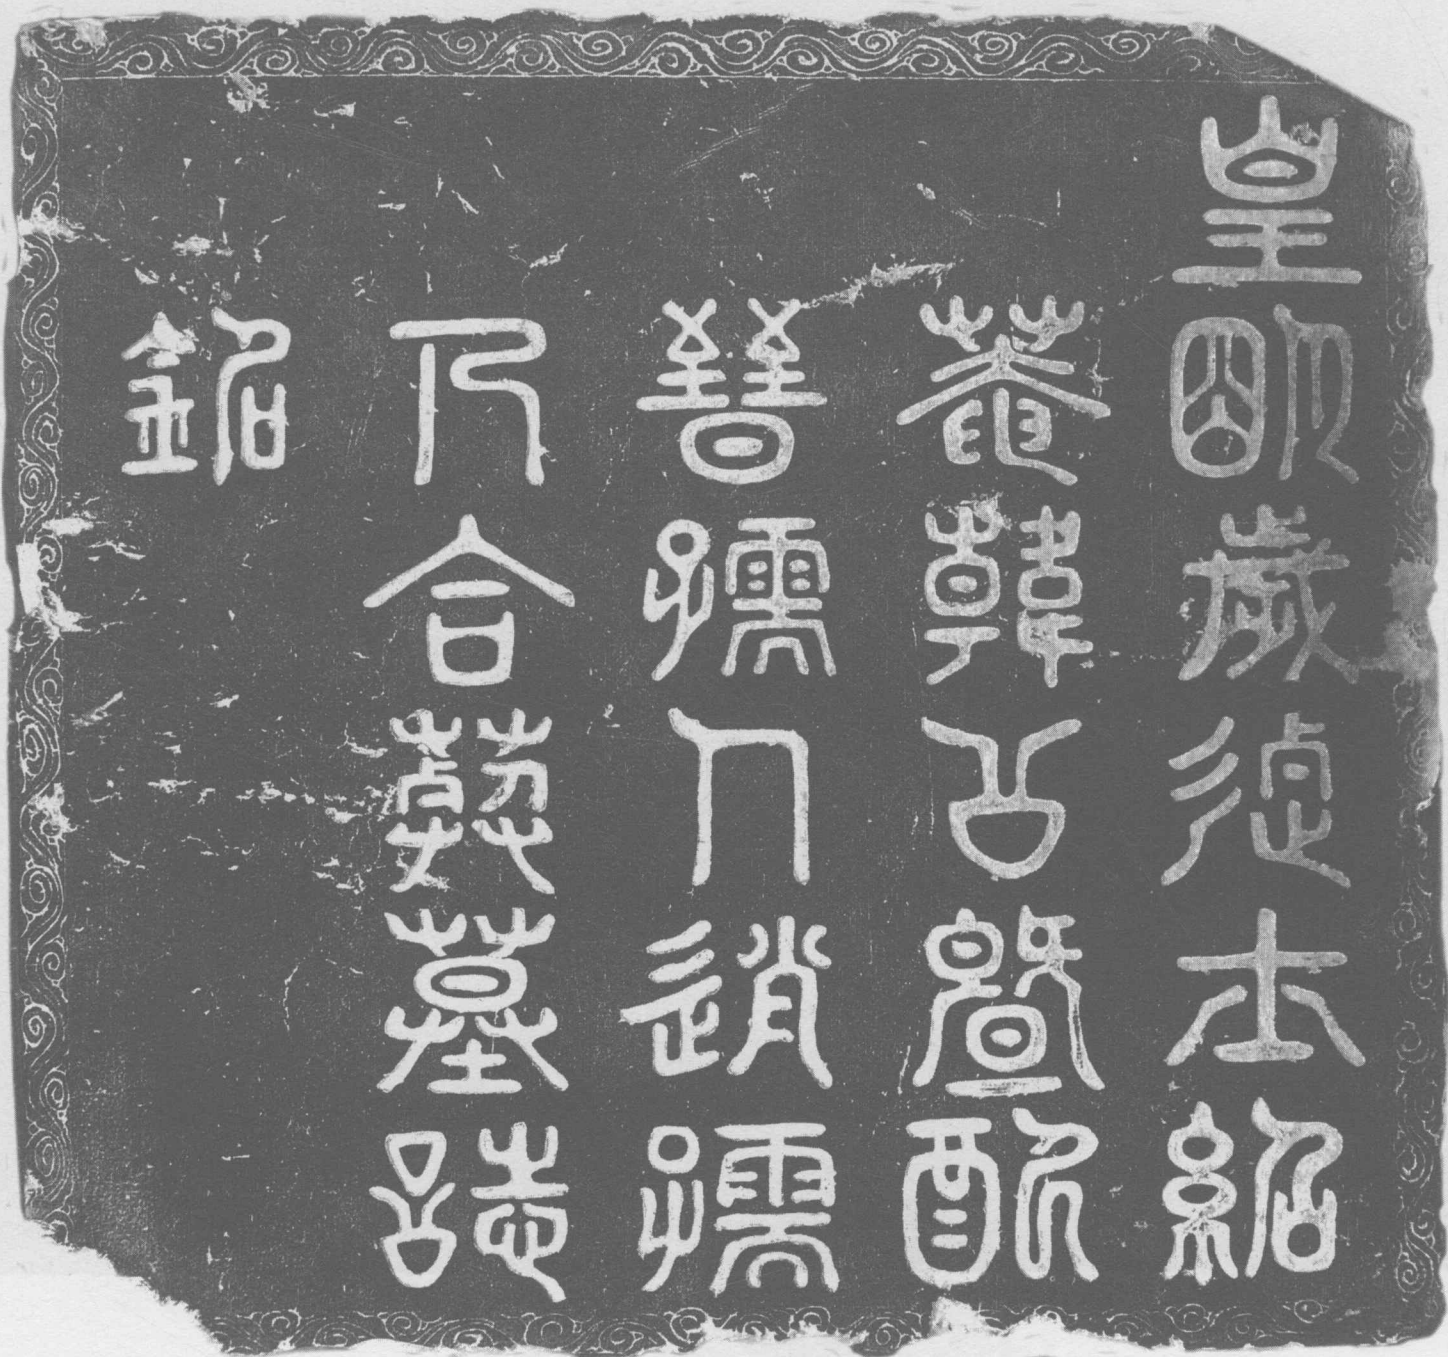 皇明歲進士紹
菴韓公曁配
晉孺人趙孺
人合葬墓誌
銘